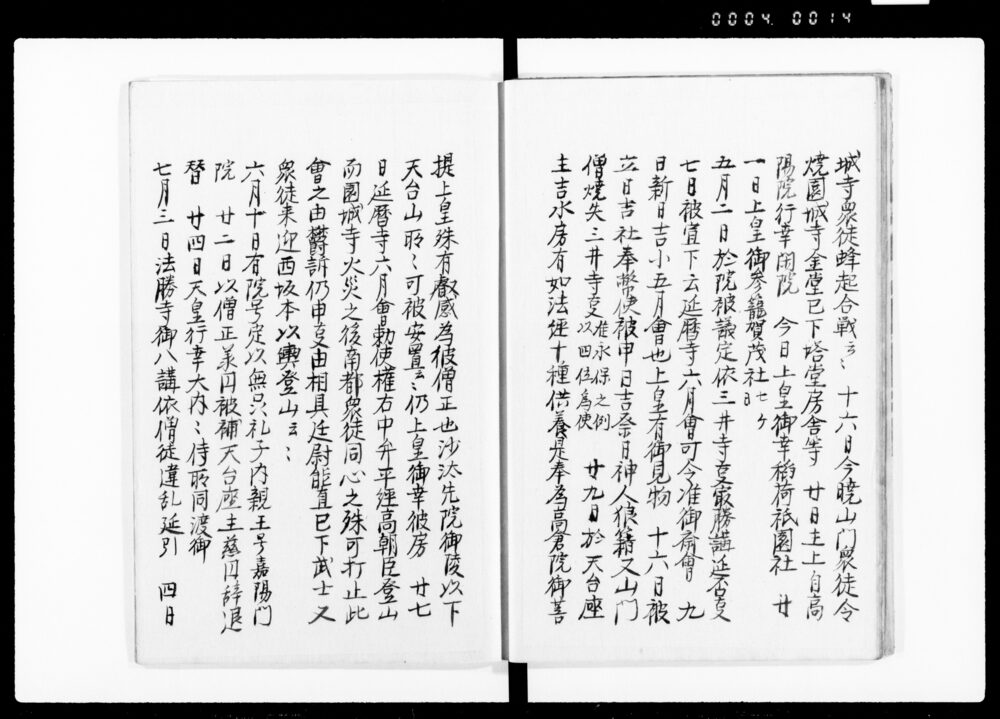 0004.0014
城寺衆徒蜂起合戦云々 十六日今暁山门衆徒令
焼園城寺金堂已下塔堂房舎等 廿日主上自高
陽院行幸閑院 今日上皇御幸稻荷祇園社 廿
一日上皇御参籠賀茂社七ケ日
五月二日於院被議定依三井寺㕝最勝講延否㕝
七日被宣下云延暦寺六月會可令准御斎會 九
日新日吉小五月會也上皇有御見物 十六日被
立日吉社奉幣使被申日吉祭日神人狼籍又山門
僧焼失三井寺㕝准永保之例以四位為使 廿九日於天台座
主吉水房有如法経十種供養是奉為高倉院御菩
提上皇殊有叡感為彼僧正也沙汰先院御陵以下
天台山所々可被安置云々仍上皇御幸彼房 廿七
日延暦寺六月會勅使権右中弁平経高朝臣登山
而園城寺火災之後南都衆徒同心之殊可打止此
會之由欝訴仍申㕝由相具廷尉能直已下武士又
衆徒来迎西坂本以輿登山云々
六月十日有院号定以無品礼子内親王号嘉陽門
院 廿二日以僧正承円被補天台座主慈円辞退
替 廿四日天皇行幸大内々侍所同渡御
七月三日法勝寺御八講依僧徒違乱延引 四日